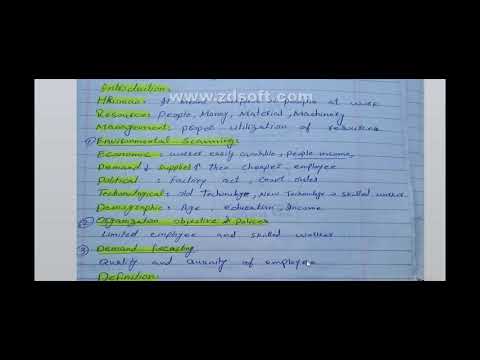 Introduction:
www.zdsoft.com
Human: It people at work
Resource: People, Money, Material, Machinery
Management: proper utilization of resources
① Environmental Scanning:
Economic: worker easily available, people income,
Demand ↓ supplies ↑ then cheapest employee
Political: factory act, court order
Technological: old Technology, New Technology → skilled worker.
Demographic: Age, education, Income
② Organization objective & polices
Limited employee and skilled worker
③ Demand forecasting
Quality and Quanity of employee
Definition: